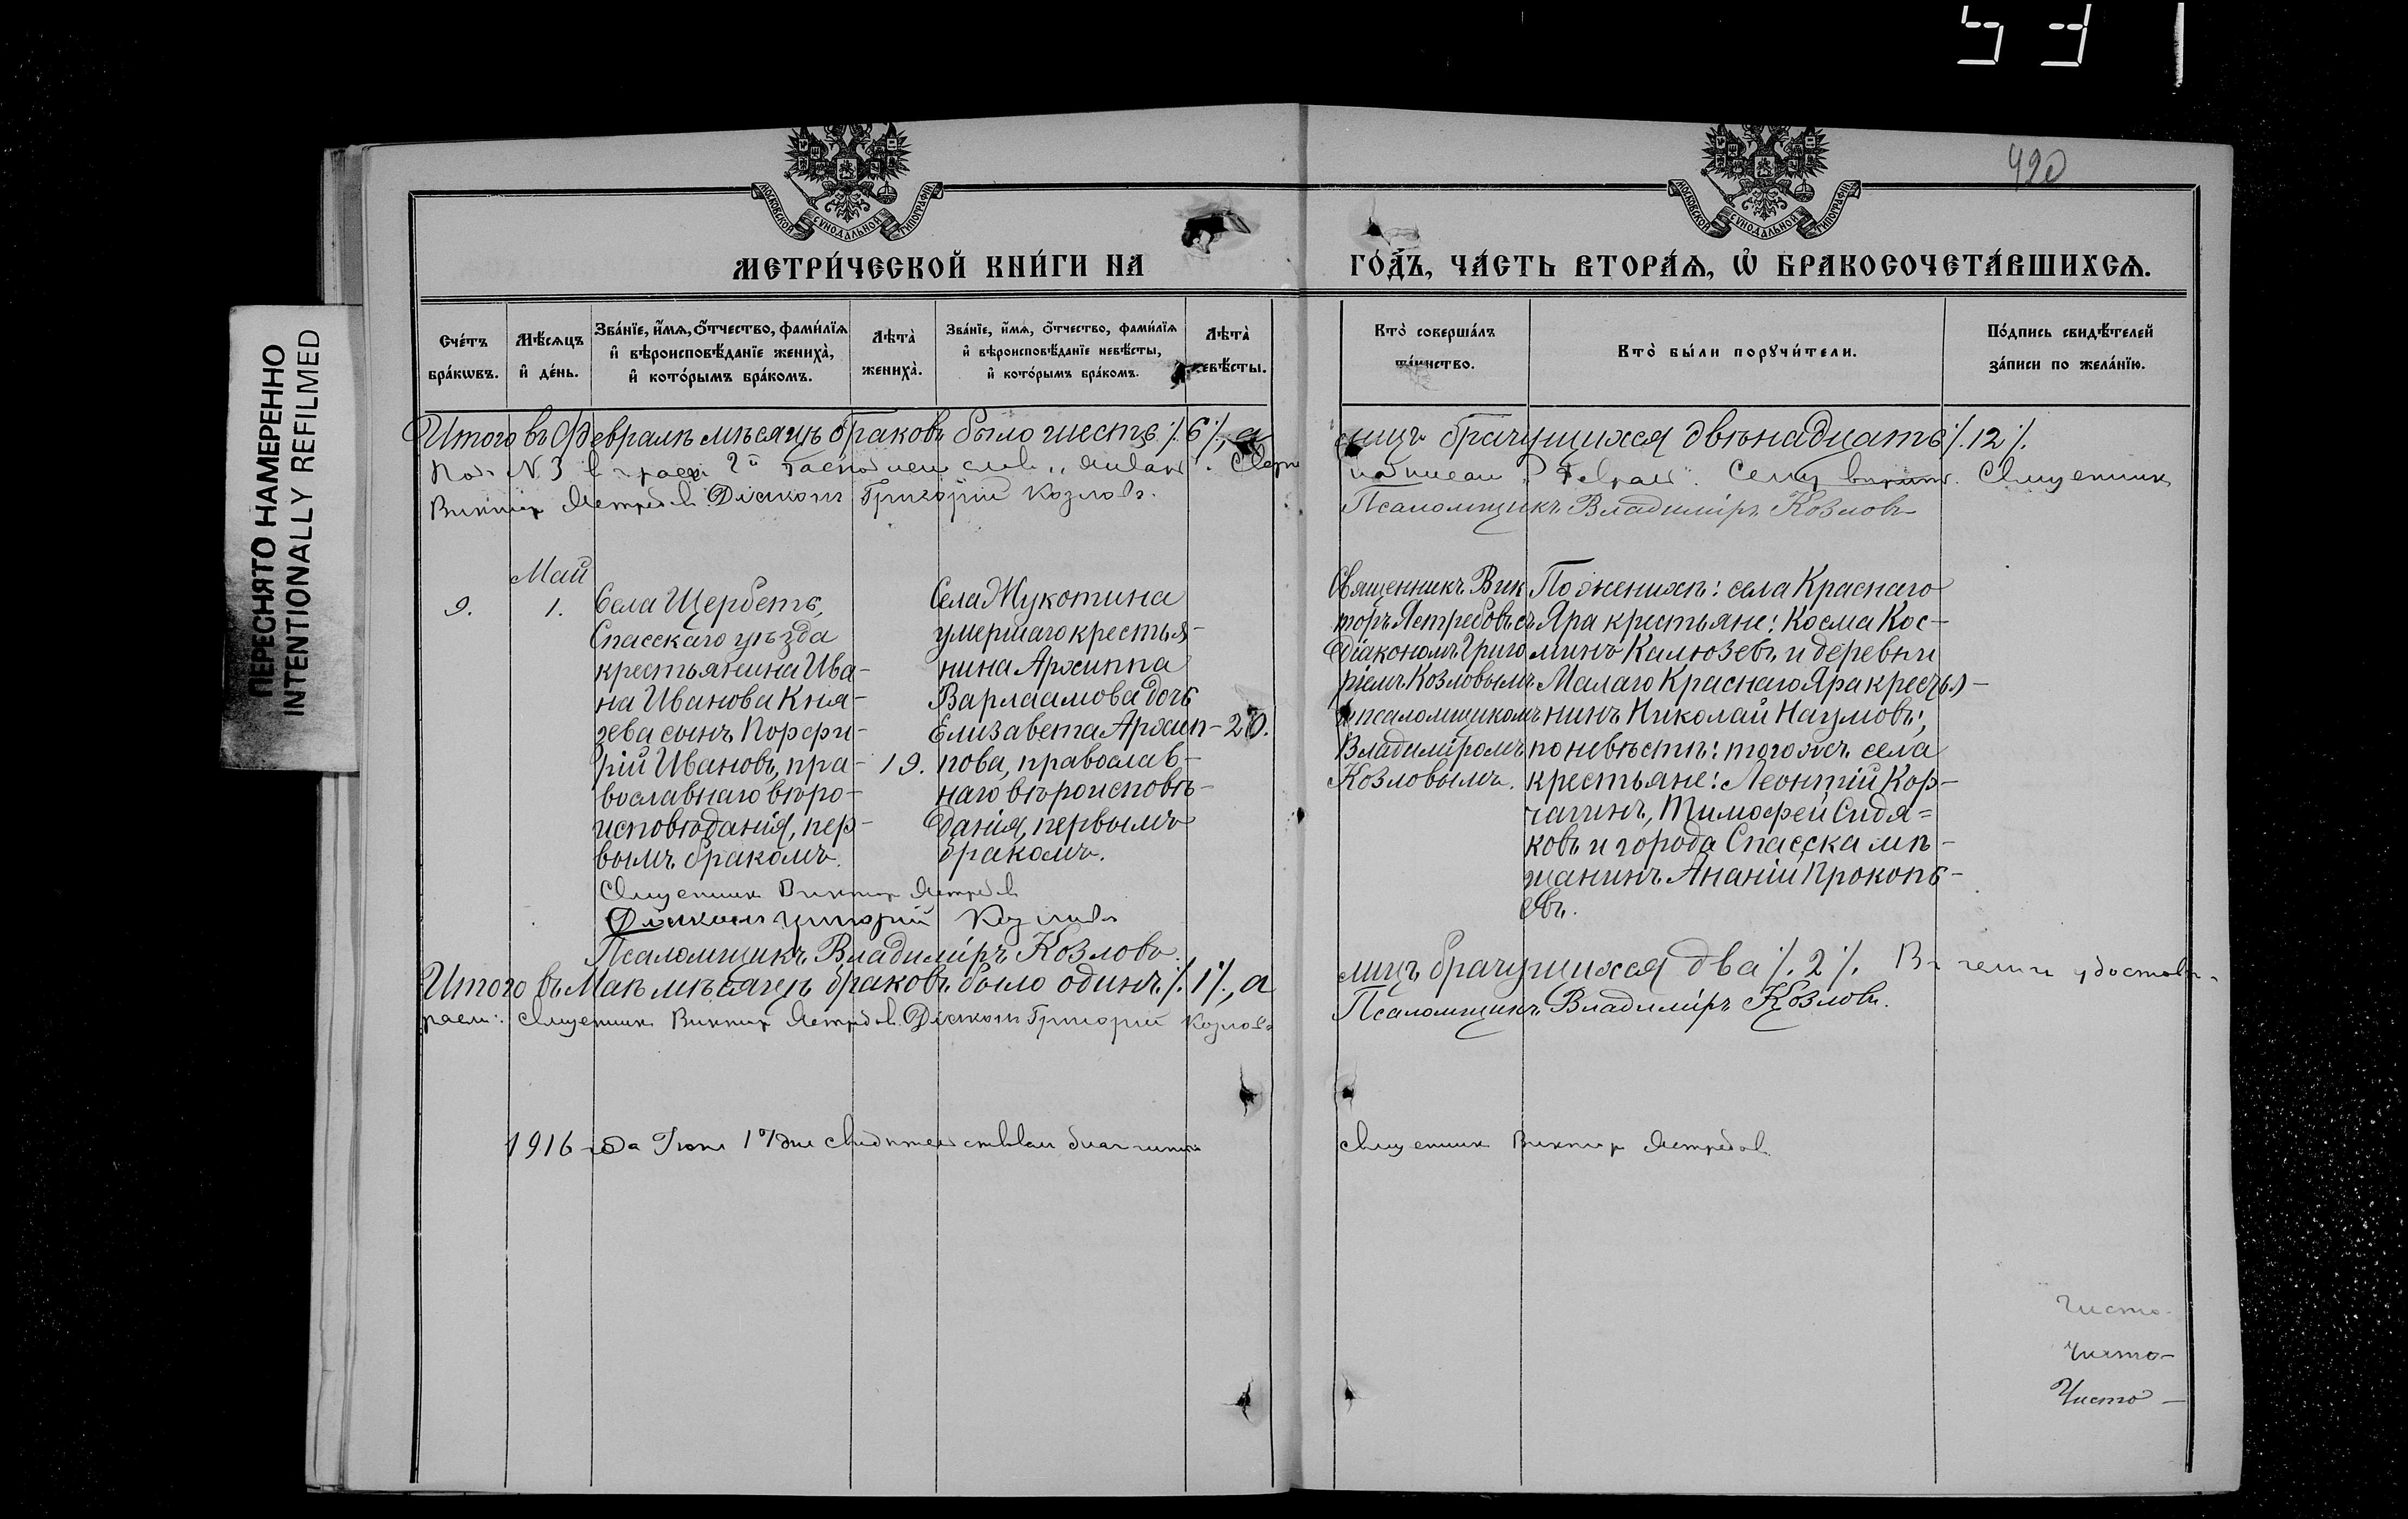 420
ПЕРЕСНЯТО НАМЕРЕННО
INTENTIONALLY REFILMED
МОСКОВСКОЙ СѴНОДАЛЬНОЙ ТИПОГРАФІИ
МОСКОВСКОЙ СѴНОДАЛЬНОЙ ТИПОГРАФІИ
МЕТРИ́ЧЕСКОЙ КНИ́ГИ НА
ГО́ДЪ, ЧА́СТЬ ВТОРА́Ѧ, Ѽ БРАКОСОЧЕТА́ВШИХСѦ.
Сче́тъ
бра́кѡвъ.
Мѣ́сѧцъ
и҆ де́нь.
Зва́нїе, и҆́мѧ, ѻ҆́тчество, фами́лїѧ
и҆ вѣроисповѣ́данїе жениха̀,
и҆ кото́рымъ бра́комъ.
Лѣта̀
жениха̀.
Зва́нїе, и҆́мѧ, ѻ҆́тчество, фами́лїѧ
и҆ вѣроисповѣ́данїе невѣ́сты,
и҆ кото́рымъ бра́комъ.
Лѣта̀
невѣ́сты.
Кто̀ соверша́лъ
та́инство.
Кто̀ бы́ли порꙋчи́тели.
По́дпись свидѣ́телей
за́писи по жела́нїю.
Итого въ Февралѣ мѣсяцѣ браковъ было шесть ·/. 6 ·/., а
лицъ брачущихся двѣнадцать ·/. 12 ·/.
Подъ N 3 въ графѣ 2й
Священникъ
Викторъ Ястребовъ. Діаконъ Григорій Козловъ.
Псаломщикъ Владиміръ Козловъ
Май
9.
1.
Села Щербеть,
Спасскаго уѣзда
крестьянина Ива-
на Иванова Кня-
зева сынъ Порфи-
рій Ивановъ, пра-
вославнаго вѣро-
исповѣданія, пер-
вымъ бракомъ.
19.
Села Жукотина
умершаго крестья-
нина Архиппа
Варлаамова дочь
Елизавета Архип-
пова, православ-
наго вѣроисповѣ-
данія, первымъ
бракомъ.
20.
Священникъ Вик
торъ Ястребовъ съ
діакономъ Григо
ріемъ Козловымъ
и псаломщикомъ
Владиміромъ
Козловымъ.
По женихѣ: села Краснаго
Яра крестьяне: Косма Кос-
минъ Калюзевъ и деревни
Малаго Краснаго Яра крестья-
нинъ Николай Наумовъ;
по невѣстѣ: того же села
крестьяне: Леонтій Кор-
чагинъ, Тимофей Сидя=
ковъ и города Спасска мѣ-
щанинъ Ананій Прокопь-
евъ.
Священникъ Викторъ Ястребовъ
Діаконъ Григорій Козловъ
Псаломщикъ Владиміръ Козловъ.
Итого въ Маѣ мѣсяцѣ браковъ было одинъ ·/. 1 ·/., а
лицъ брачущихся два ·/. 2 ·/. Въ чемъ и удостовѣ-
ряемъ: Священникъ Викторъ Ястребовъ. Діаконъ Григорій Козловъ
Псаломщикъ Владиміръ Козловъ.
1916 года Іюня 17 дня свидѣтельствовалъ благочинный
священникъ Викторъ Ястребовъ
Чисто
Чисто-
Чисто -